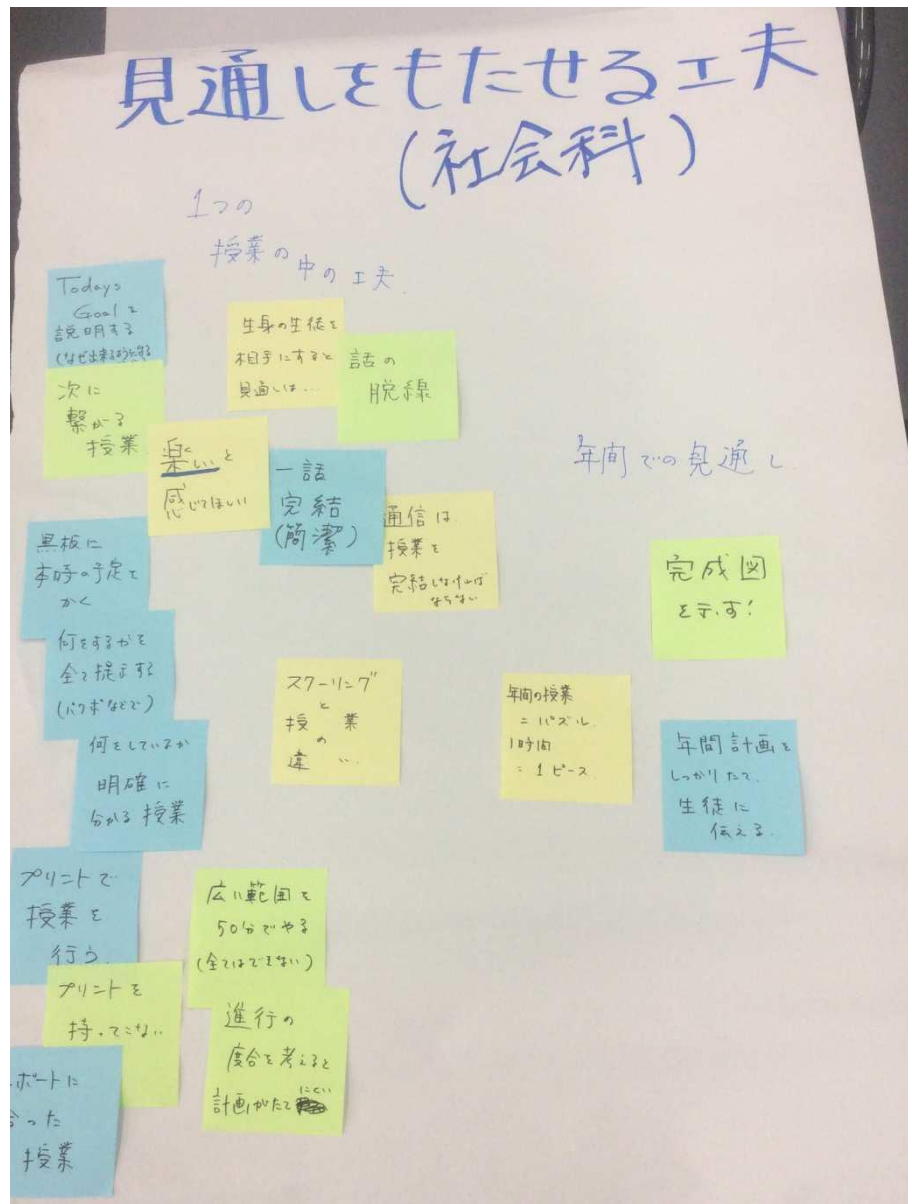 見通しをもたせる工夫
(社会科)
1つの
授業の中の工夫
Todays
Goalを
説明する
(なぜ出来るようにする
次に
繋がる
授業
生身の生徒を
相手にすると
見通しは…
話の
脱線
楽しいと
感じてほしい
一話
完結
(簡潔)
通信は
授業を
完結しなければ
ならない
黒板に
本時の予定を
かく
何をするかを
全て提示する
(パワポなどで)
何をしているか
明確に
分かる授業
スクーリング
と
授業
の
違い…
プリントで
授業を
行う
プリントを
持ってこない
ポートに
合った
授業
広い範囲を
50分でやる
(全てはできない)
進行の
度合を考えると
計画がたてにくい
年間での見通し
完成図
を示す!
年間の授業
=パズル
1時間
=1ピース
年間計画を
しっかりたて、
生徒に
伝える